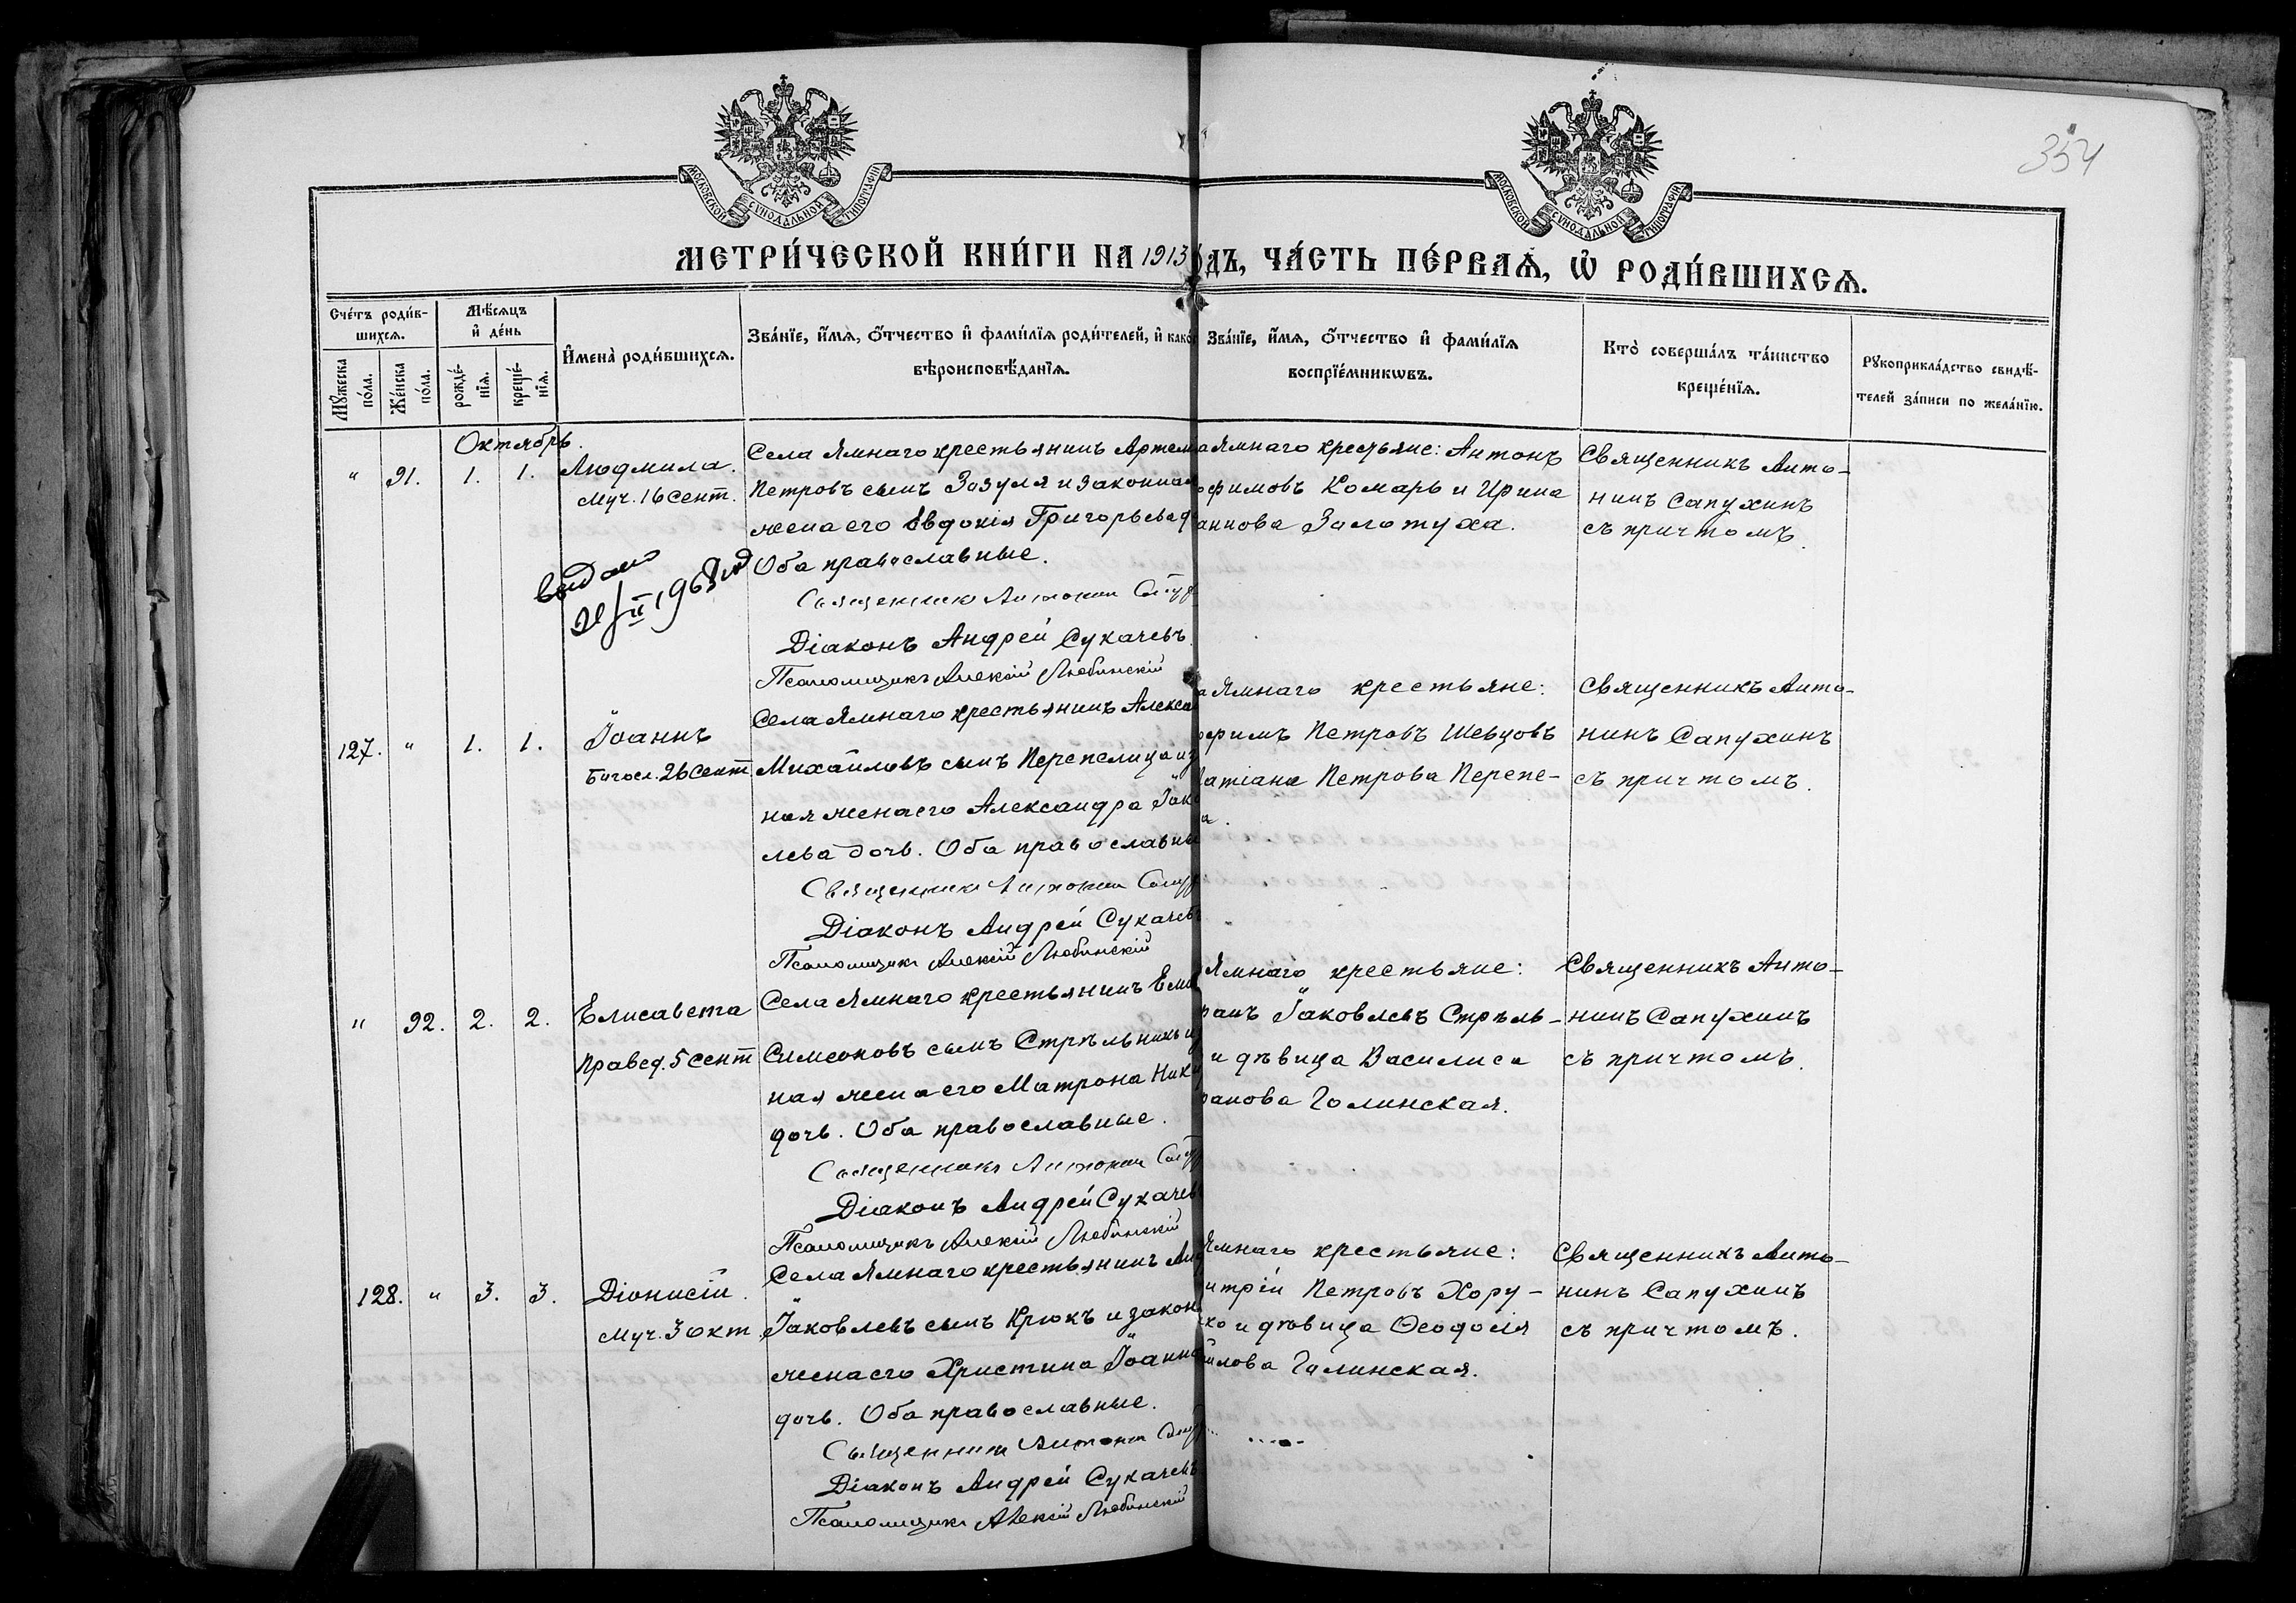 354
МОСКОВСКОЙ СѴНОДАЛЬНОЙ ТИПОГРАФІИ
МОСКОВСКОЙ СѴНОДАЛЬНОЙ ТИПОГРАФІИ
МЕТРИ́ЧЕСКОЙ КНИ́ГИ НА 1913 ДЪ, ЧА́СТЬ ПЕ́РВАѦ, Ѡ РОДИ́ВШИХСѦ.
Сче́тъ роди́в-
шихсѧ.
Мѣ́сѧцъ
и҆ де́нь
Мꙋ́жеска
по́ла.
Же́нска
по́ла.
рожде́-
нїѧ.
креще́-
нїѧ.
И҆мена̀ роди́вшихсѧ.
Зва́нїе, и҆́мѧ, ѻ҆́тчество и҆ фами́лїѧ роди́телей, и҆ како́
вѣроисповѣ́данїѧ.
Зва́нїе, и҆́мѧ, ѻ҆́тчество и҆ фами́лїѧ
воспрїе́мникѡвъ.
Кто̀ соверша́лъ та́инство
креще́нїѧ.
Рꙋкоприкла́дство свидѣ́-
телей за́писи по жела́нїю.
Октябрь.
" 91. 1. 1. Людмила.
муч. 16 сент.
Села Ямнаго крестьянинъ Артем
Петровъ сынъ Зозуля и законная
жена его Евдокія Григорьева д
Оба православные.
Священникъ Антонин
Діаконъ Андрей Сукачевъ.
Псаломщикъ Алексій Любинскій
выдано
1963
а Ямнаго крестьяне: Антонъ
офимовъ Комарь и Ирина
аннова Золотуха.
Священникъ Анто-
нинъ Сапухинъ
съ причтомъ.
127. " 1. 1. Іоаннъ
Богосл. 26 сент
Села Ямнаго крестьянинъ Алекса
Михайловъ сынъ Перепелица и з
ная жена его Александра Іако
лева дочь. Оба православны
Священникъ Антонин
Діаконъ Андрей Сукачевъ
Псаломщикъ Алексій Любинскій
а Ямнаго крестьяне:
офимъ Петровъ Шевцовъ
атіана Петрова Перепе-
а.
Священникъ Анто-
нинъ Сапухинъ
съ причтомъ.
" 92. 2. 2. Елисавета
Правед. 5 сент
Села Ямнаго крестьянинъ Еми
Симеоновъ сынъ Стрѣльникъ и з
ная жена его Матрона Ник
дочь. Оба православные.
Священникъ Антонин
Діаконъ Андрей Сукачев
Псаломщикъ Алексій Любинскій
Ямнаго крестьяне:
ранъ Іаковлевъ Стрѣль-
и дѣвица Василиса
ранова Голинская.
Священникъ Анто-
нинъ Сапухинъ
съ причтомъ.
128. " 3. 3. Діонисій.
муч. 3 окт
Села Ямнаго крестьянинъ Анд
Іаковлевъ сынъ Крюкъ и закон
жена его Христина Іоанно
дочь. Оба православные.
Священникъ Антонин
Діаконъ Андрей Сукачевъ
Псаломщикъ Алексій Любинскій
Ямнаго крестьяне:
итрій Петровъ Хору-
ко и дѣвица Ѳеодосія
йлова Галинская.
Священникъ Анто-
нинъ Сапухинъ
съ причтомъ.